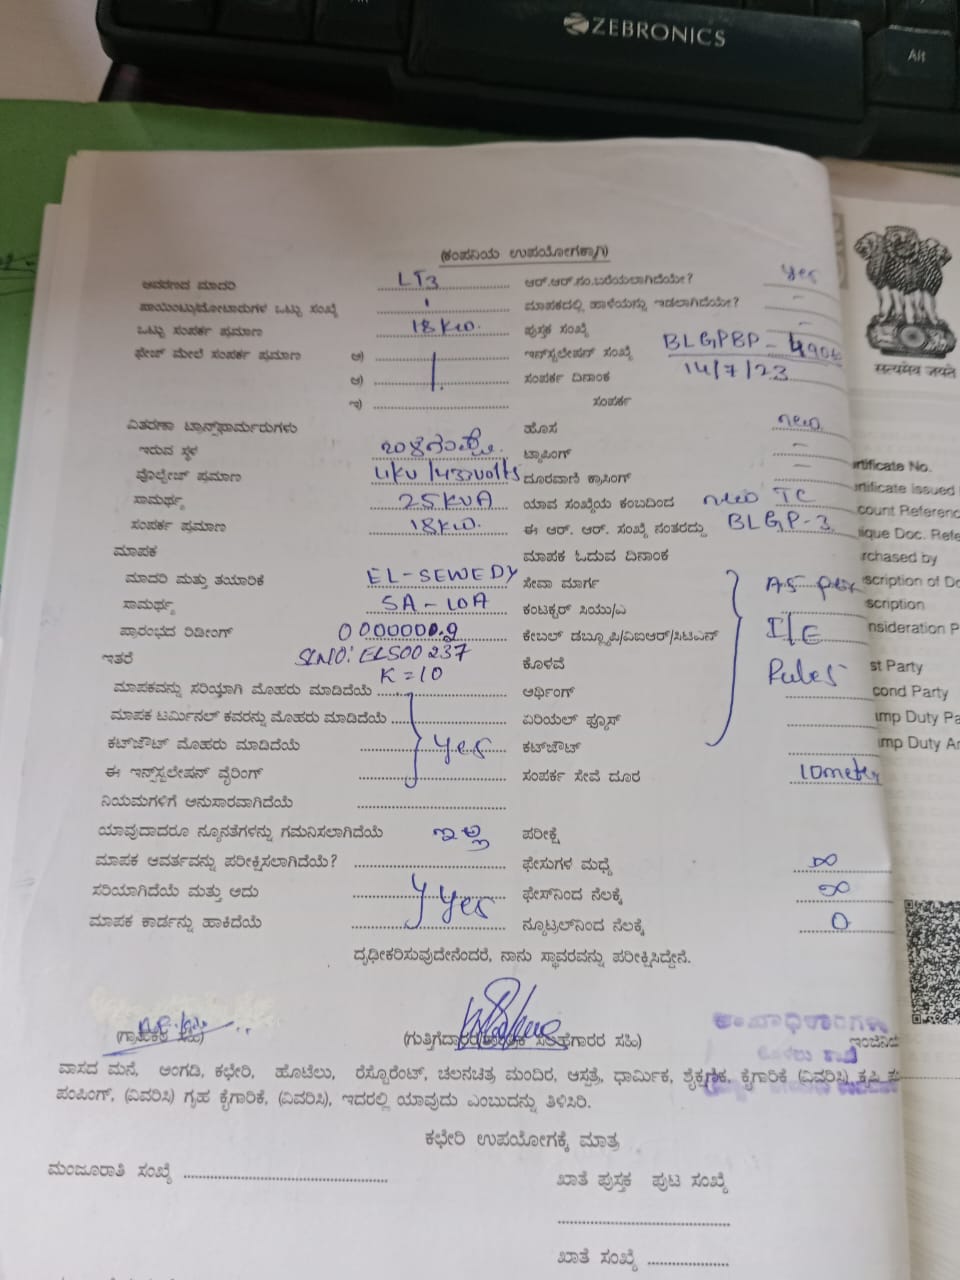 ZEBRONICS
Alt
(ಕಂಪನಿಯ ಉಪಯೋಗಕ್ಕಾಗಿ)
ಆವರಣದ ಮಾದರಿ LT3 ಆರ್.ಆರ್.ನಂ.ಬರೆಯಲಾಗಿದೆಯೇ? yes
ಪಾಯಿಂಟ್ಸು/ಮೋಟಾರುಗಳ ಒಟ್ಟು ಸಂಖ್ಯೆ 1 ಮಾಪಕದಲ್ಲಿ ಹಾಳೆಯನ್ನು ಇಡಲಾಗಿದೆಯೇ? –
ಒಟ್ಟು ಸಂಪರ್ಕ ಪ್ರಮಾಣ 18 KW. ಪುಸ್ತಕ ಸಂಖ್ಯೆ –
ಫೇಜ್ ಮೇಲೆ ಸಂಪರ್ಕ ಪ್ರಮಾಣ ಅ) ಇನ್‌ಸ್ಟಲೇಷನ್ ಸಂಖ್ಯೆ BLGPBP –
ಆ) ಸಂಪರ್ಕ ದಿನಾಂಕ 14/7/23
ಇ) ಸಂಪರ್ಕ
ವಿತರಣಾ ಟ್ರಾನ್ಸ್‌ಫಾರ್ಮರುಗಳು ಹೊಸ new
ಇರುವ ಸ್ಥಳ ಟ್ಯಾಪಿಂಗ್ –
ವೋಲ್ಟೇಜ್ ಪ್ರಮಾಣ 11KV /433volts ದೂರವಾಣಿ ಕ್ರಾಸಿಂಗ್ –
ಸಾಮರ್ಥ್ಯ 25KVA ಯಾವ ಸಂಖ್ಯೆಯ ಕಂಬದಿಂದ new TC
ಸಂಪರ್ಕ ಪ್ರಮಾಣ 18KW. ಈ ಆರ್. ಆರ್. ಸಂಖ್ಯೆ ನಂತರದ್ದು BLGP-3
ಮಾಪಕ ಮಾಪಕ ಓದುವ ದಿನಾಂಕ
ಮಾದರಿ ಮತ್ತು ತಯಾರಿಕೆ EL-SEWEDY ಸೇವಾ ಮಾರ್ಗ As per
ಸಾಮರ್ಥ್ಯ 5A-10A ಕಂಟಕ್ಟರ್ ಸಿಯು/ಎ
ಪ್ರಾರಂಭದ ರಿಡಿಂಗ್ 0000000.9 ಕೇಬಲ್ ಡಬ್ಲ್ಯೂಪಿ/ವಿಐಆರ್/ಸಿಟಿಎಸ್ I/E
ಇತರೆ SLNO: ELS00237 ಕೊಳವೆ Rules
K=10
ಮಾಪಕವನ್ನು ಸರಿಯಾಗಿ ಮೊಹರು ಮಾಡಿದೆಯೆ ಆರ್ಥಿಂಗ್
ಮಾಪಕ ಟರ್ಮಿನಲ್ ಕವರನ್ನು ಮೊಹರು ಮಾಡಿದೆಯೆ ಏರಿಯಲ್ ಫ್ಯೂಸ್
ಕಟ್‌ಔಟ್ ಮೊಹರು ಮಾಡಿದೆಯೆ yes ಕಟ್‌ಔಟ್
ಈ ಇನ್ಸ್‌ಸ್ಟಲೇಷನ್ ವೈರಿಂಗ್ ಸಂಪರ್ಕ ಸೇವೆ ದೂರ 10meter
ನಿಯಮಗಳಿಗೆ ಅನುಸಾರವಾಗಿದೆಯೆ
ಯಾವುದಾದರೂ ನ್ಯೂನತೆಗಳನ್ನು ಗಮನಿಸಲಾಗಿದೆಯೆ ಇಲ್ಲ ಪರೀಕ್ಷೆ
ಮಾಪಕ ಆವರ್ತವನ್ನು ಪರೀಕ್ಷಿಸಲಾಗಿದೆಯೆ? ಫೇಸುಗಳ ಮಧ್ಯೆ ∞
ಸರಿಯಾಗಿದೆಯೆ ಮತ್ತು ಅದು yes ಫೇಸ್‌ನಿಂದ ನೆಲಕ್ಕೆ ∞
ಮಾಪಕ ಕಾರ್ಡನ್ನು ಹಾಕಿದೆಯೆ ನ್ಯೂಟ್ರಲ್‌ನಿಂದ ನೆಲಕ್ಕೆ 0
ದೃಢೀಕರಿಸುವುದೇನೆಂದರೆ, ನಾನು ಸ್ಥಾವರವನ್ನು ಪರೀಕ್ಷಿಸಿದ್ದೇನೆ.
(ಗ್ರಾಹಕರ ಸಹಿ) (ಗುತ್ತಿಗೆದಾರರ ಸಹಿ)
ವಾಸದ ಮನೆ, ಅಂಗಡಿ, ಕಛೇರಿ, ಹೊಟೆಲು, ರೆಸ್ಟೊರೆಂಟ್, ಚಲನಚಿತ್ರ ಮಂದಿರ, ಆಸ್ಪತ್ರೆ, ಧಾರ್ಮಿಕ, ಶೈಕ್ಷಣಿಕ, ಕೈಗಾರಿಕೆ (ವಿವರಿಸಿ) ಕೃಷಿ
ಪಂಪಿಂಗ್, (ವಿವರಿಸಿ) ಗೃಹ ಕೈಗಾರಿಕೆ, (ವಿವರಿಸಿ), ಇದರಲ್ಲಿ ಯಾವುದು ಎಂಬುದನ್ನು ತಿಳಿಸಿರಿ.
ಕಛೇರಿ ಉಪಯೋಗಕ್ಕೆ ಮಾತ್ರ
ಮಂಜೂರಾತಿ ಸಂಖ್ಯೆ ಖಾತೆ ಪುಸ್ತಕ ಪುಟ ಸಂಖ್ಯೆ
ಖಾತೆ ಸಂಖ್ಯೆ
सत्यमेव जयते
rtificate No.
rtificate Issued
count Referenc
ique Doc. Refe
rchased by
scription of Do
scription
nsideration P
st Party
cond Party
amp Duty Pa
amp Duty Ar